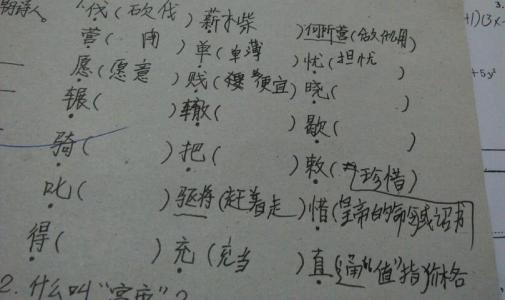 的诗人。
伐(砍伐)薪木柴
营( 用 )单(单薄 )何所营(做什么用
愿(愿意 )贱( 便宜)忧(担忧 )
辗( )辙( )晓( )
骑( )把( )歇( )
叱( )驱将(赶着走)敕( 珍惜)
得( )充(充当 )惜(皇帝的命令或诏书
直(通"值"指价格
2.什么叫"宫市"?
3.
+1)(3x-
+5y²